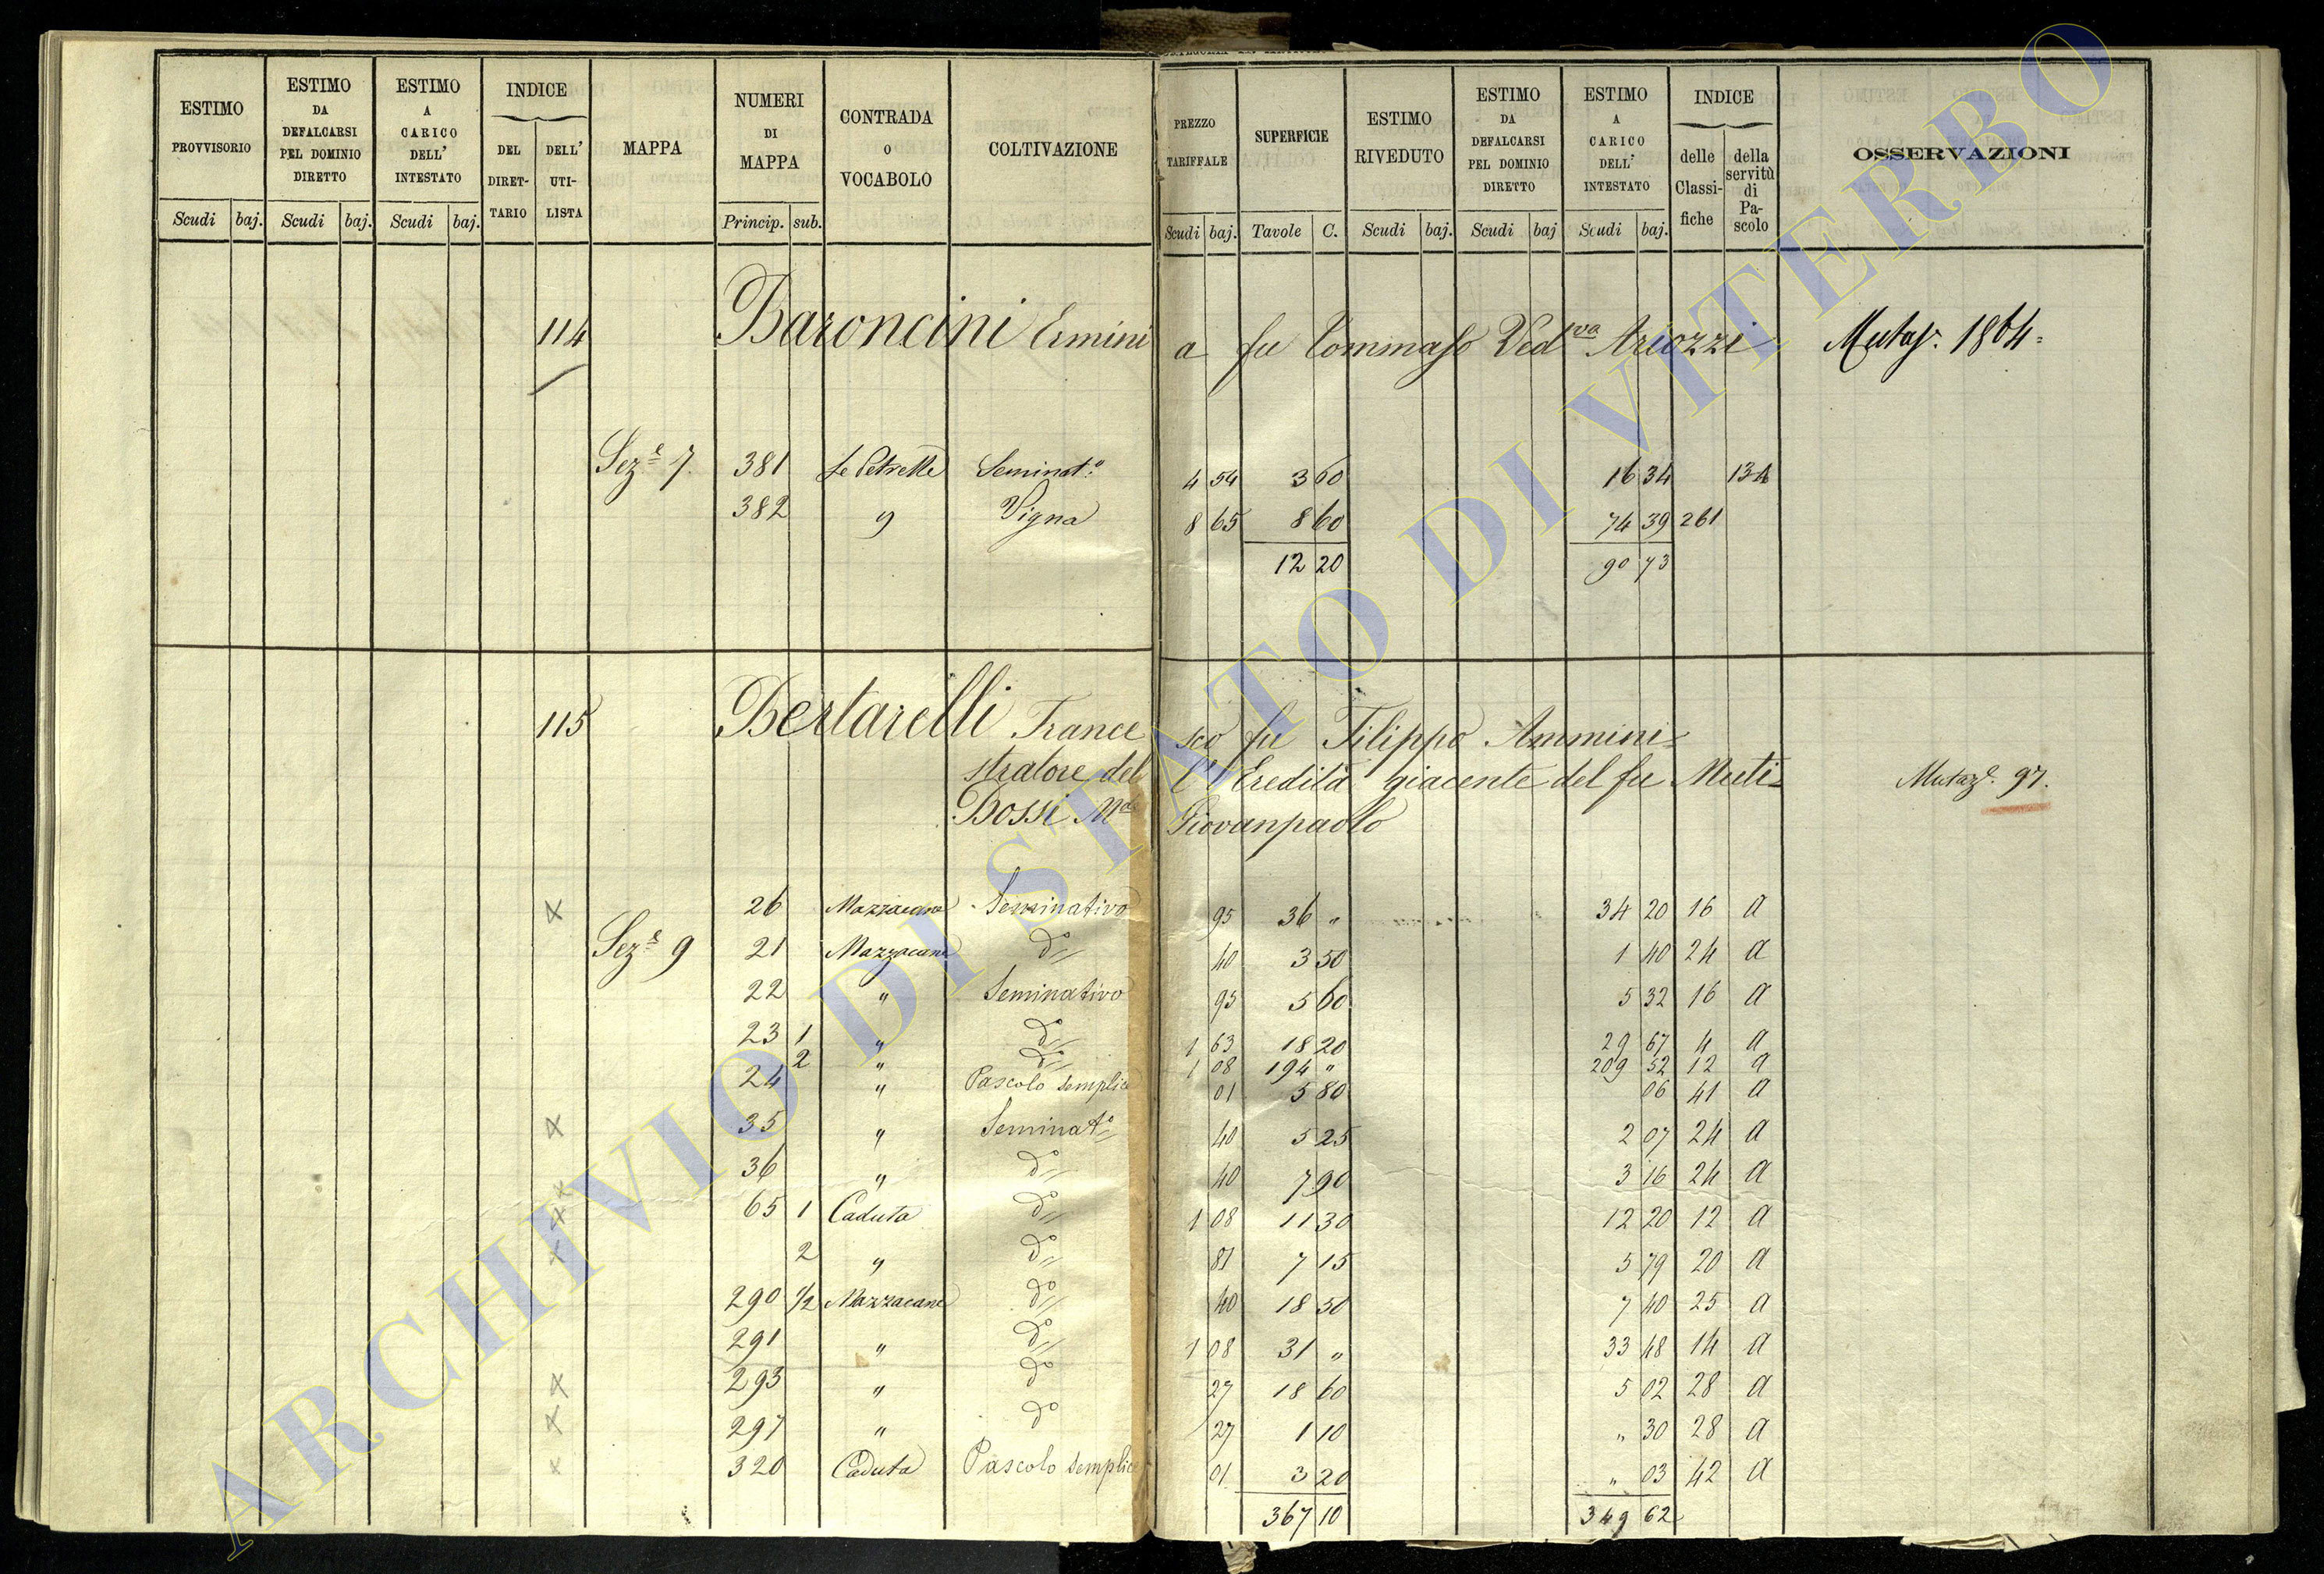 ESTIMO PROVVISORIO | ESTIMO DA DEFALCARSI PEL DOMINIO DIRETTO | ESTIMO A CARICO DELL' INTESTATO | INDICE DEL DIRETTARIO | DELL' UTILISTA | MAPPA | NUMERI DI MAPPA | CONTRADA O VOCABOLO | COLTIVAZIONE | PREZZO TARIFFALE | SUPERFICIE | ESTIMO RIVEDUTO | ESTIMO DA DEFALCARSI PEL DOMINIO DIRETTO | ESTIMO A CARICO DELL' INTESTATO | INDICE delle Classifiche | della servitù di Pascolo | OSSERVAZIONI
Scudi baj. Scudi baj. Scudi baj. Princip. sub. Scudi baj. Tavole C. Scudi baj. Scudi baj Scudi baj.
114 Baroncini Ermini a fu Tommaso Ved.va Ariozzi Mutaz. 1864
Sez.e 7. 381 Le Petrelle Seminat.o 4 54 3 60 16 34 13 A
382 " Vigna 8 65 8 60 74 39 261
12 20 90 73
115 Bertarelli France sco fu Filippo Ammini=
stratore del l'Eredità giacente del fu Muti=
Bossi M.e Giovanpaolo Mutaz.e 97.
26 Mazzacane Seminativo 95 36 " 34 20 16 a
Sez.e 9 21 Mazzacane d.o 40 3 50 1 40 24 a
22 " Seminativo 95 5 60 5 32 16 a
23 1 " d.o 1 63 18 20 29 67 4 a
2 " d.o 1 08 194 " 209 52 12 a
24 " Pascolo semplice 01 5 80 06 41 a
35 " Seminat.o 40 5 25 2 07 24 a
36 " d.o 40 7 90 3 16 24 a
65 1 Caduta d.o 1 08 11 30 12 20 12 a
2 " d.o 81 7 15 5 79 20 a
290 1/2 Mazzacane d.o 40 18 50 7 40 25 a
291 " d.o 1 08 31 " 33 48 14 a
293 " d.o 27 18 60 5 02 28 a
297 " d.o 27 1 10 " 30 28 a
320 Caduta Pascolo semplice 01 3 20 " 03 42 a
367 10 349 62
ARCHIVIO DI STATO DI VITERBO